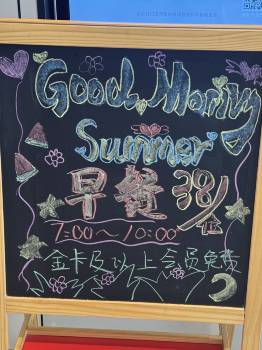 Good Morning
Summer
早餐 38/位
7:00～10:00
金卡及以上会员免费